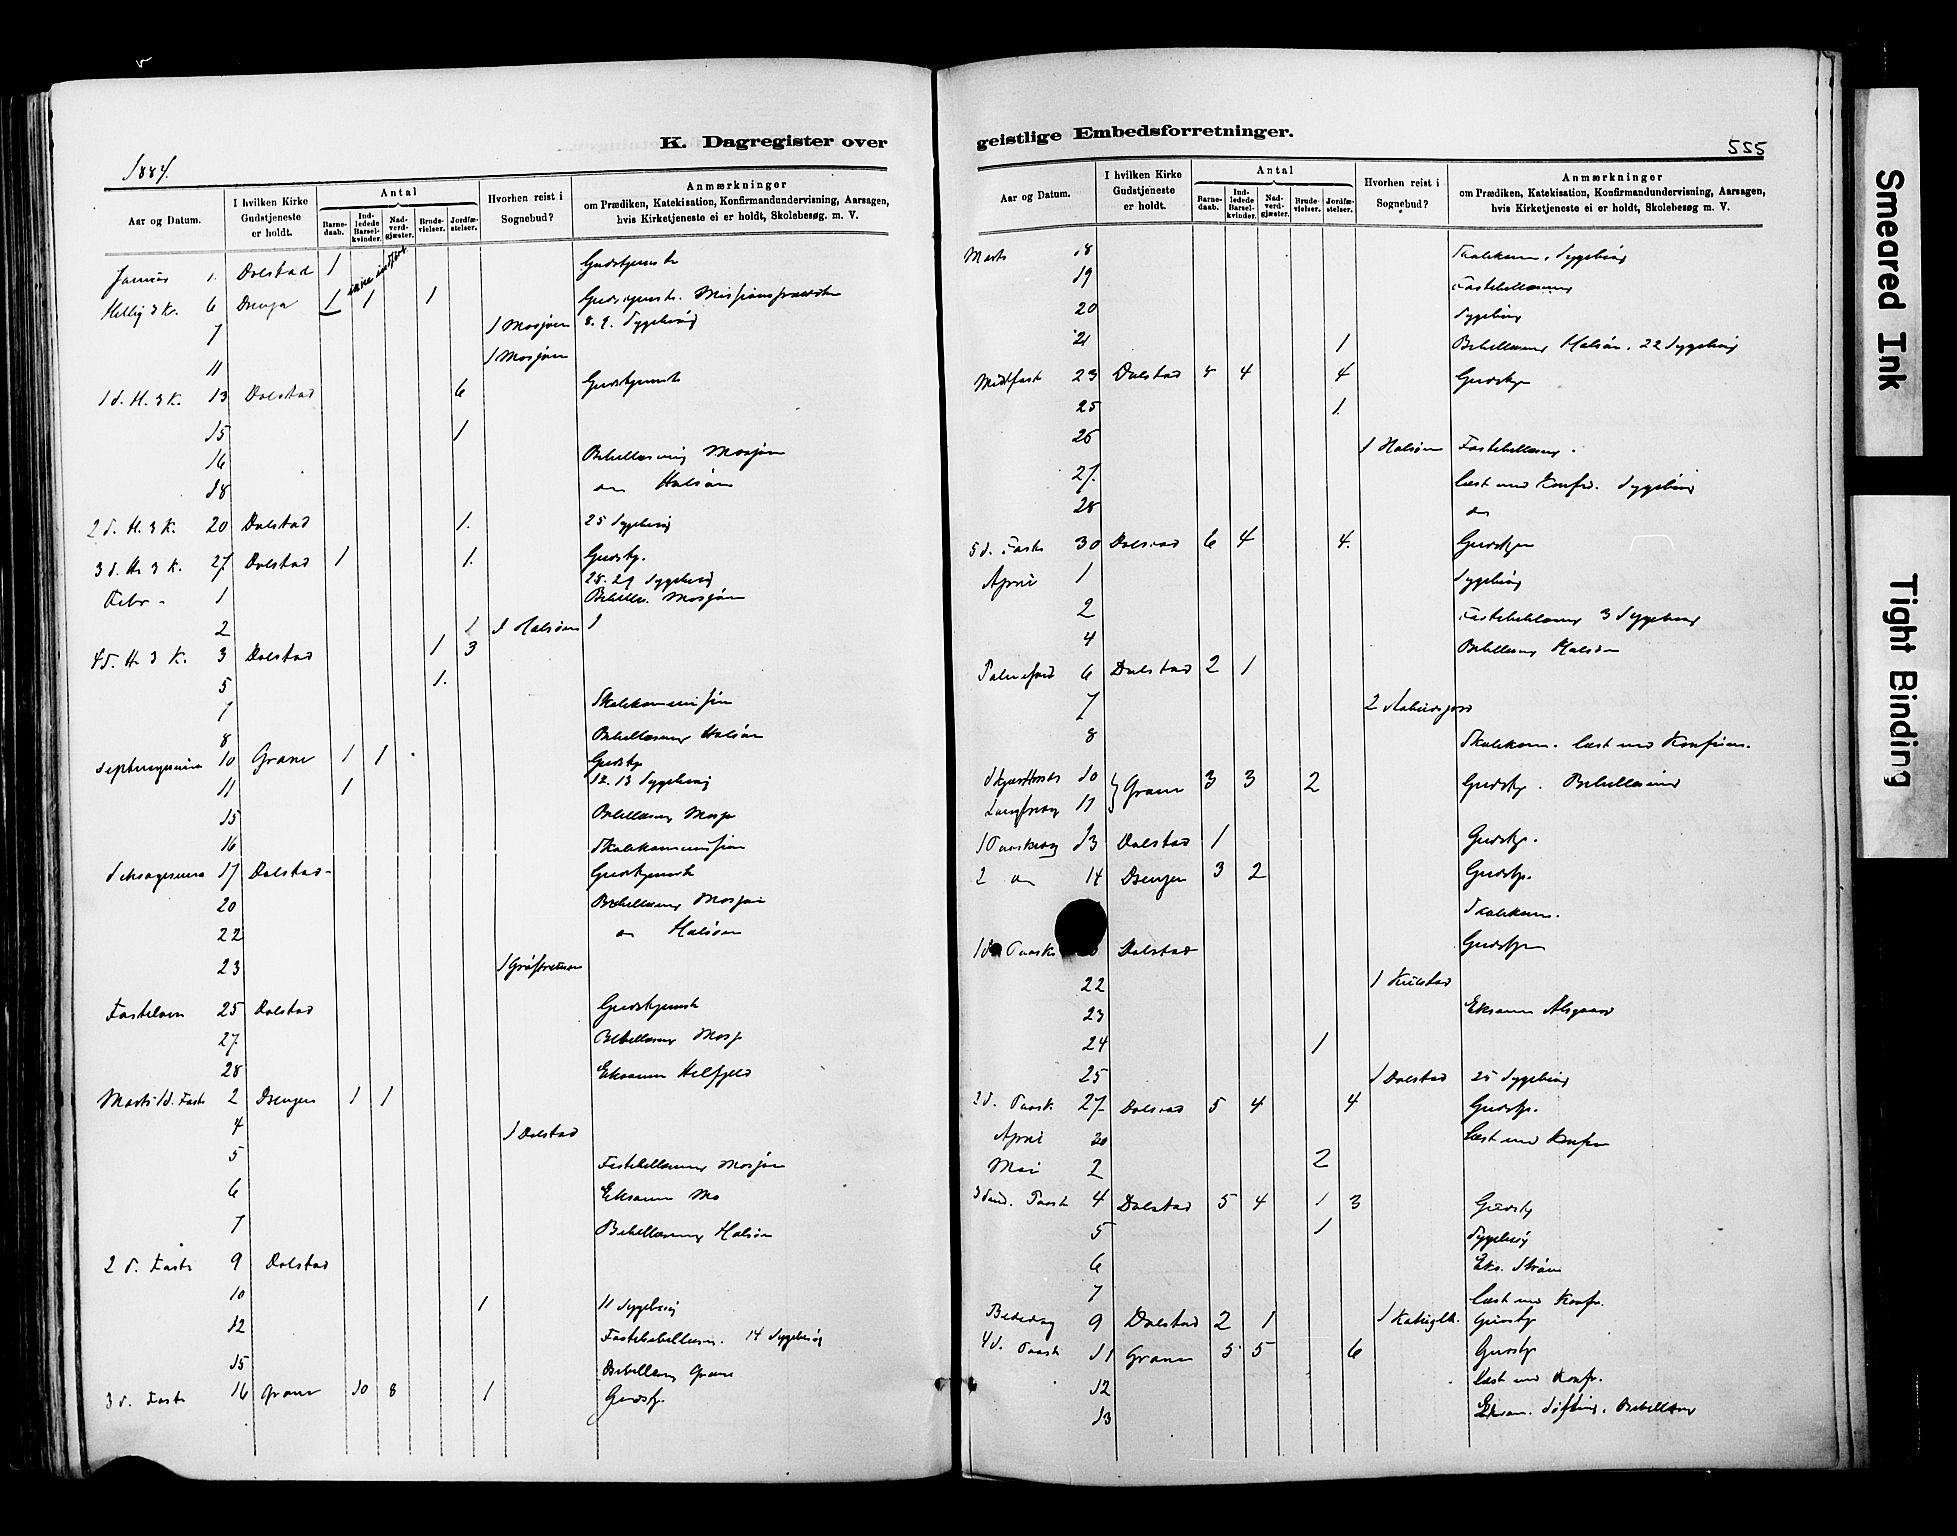 K. Dagregister over
1884.
Aar og Datum.
I hvilken Kirke Gudstjeneste er holdt.
Antal
Barnedaab.
Indledede Barselkvinder.
Nadverdgjæster.
Brudevielser.
Jordfæstelser.
Hvorhen reist i Sognebud?
Anmærkninger
om Prædiken, Katekisation, Konfirmandundervisning, Aarsagen,
hvis Kirketjeneste ei er holdt, Skolebesøg. m. V.
Januar 1. Dolstad 1 Gudstjeneste
Hellig 3 K. 6 Drevja 1 1 1 Gudstjeneste. Missionspræsten
7 1 Mosjøen 8. 9. Sygebesøg
11 1 Mosjøen
1 S. H. 3 K. 13 Dolstad 6 Gudstjeneste
15 1
16 Bibellæsning Mosjøen
18 do Halsøen
2 S. H. 3 K. 20 Dolstad 1. 25 Sygebesøg
3 S. H. 3 K. 27. Dolstad 1 1. Gudstj.
28. 29 Sygebesøg
Febr - 1 Bibellæs. Mosjøen
2 1 1 Halsøen
4 S. H. 3 K. 3 Dolstad 1 3
5 1.
7 Skolekommission
8 Bibellæsning Halsøen
Septuagesima 10 Grane 1 1 Gudstj
11 1 12. 13 Sygebesøg
15 Bibellæsning Mosjø
16 Skolekommission
Seksagesima 17 Dolstad - Gudstjeneste
20 Bibellæsning Mosjøen
22 do Halsøen
23 1
Fastelavn 25 Dolstad Gudstjeneste
27. Bibellæsning Mosjø
28 Eksamen
Marts 1 S. Faste 2 Drevjen 1 1
4 1 Dolstad
5 Fastebibellæsning Mosjøen
6 Eksamen Mo
7 Bibellæsning Halsøen
2 S. Faste 9 Dolstad
10 1 11 Sygebesøg
12 Fastebibellæsn. 14 Sygebesøg
15 Bibellæsning Grane
3 S. Faste 16 Grane 10 8 1 Gudstj.
geistlige Embedsforretninger.
555
Aar og Datum.
I hvilken Kirke Gudstjeneste er holdt.
Antal
Barnedaab.
Indledede Barselkvinder.
Nadverdgjæster.
Brudevielser.
Jordfæstelser.
Hvorhen reist i Sognebud?
Anmærkninger
om Prædiken, Katekisation, Konfirmandundervisning, Aarsagen,
hvis Kirketjeneste ei er holdt, Skolebesøg m. V.
Marts 18 Skolekom. Sygebesøg
19 Fastebibellæsning
20 Sygebesøg
21 1 Bibellæsning Halsøen. 22 Sygebesøg
Midfaste 23 Dolstad 4 4 Gudstj
25 1.
26 1 Halsøen Fastebibellæsning.
27. læst med Konfir. Sygebesøg
28 do
5 S. Faste 30 Dolstad 6 4 4. Gudstjen
April 1 Sygebesøg
2 Fastebibellæsning 3 Sygebesøg
4 Bibellæsning Halsøen
Palmesønd 6 Dolstad 2 1
7 2
8 Skolekom. læst med Konfirm.
Skjærtorsd 10 Grane 3 3 2 Gudstj. Bibellæsning
Langfredag 11
1 Paaskedag 13 Dolstad 1 Gudstj.
2 do 14 Drevjen 3 2 Gudstj.
Skolekom.
1 S. Paaske Dolstad Gudstjen
22 1 Kulstad
23 Eksamen
24 1
25 1 Dolstad 25 Sygebesøg
2 S. Paask. 27. Dolstad 5 4 4 Gudstj.
April 30 læst med Konfir
Mai 2 2
3 Sønd. Paask 4 Dolstad 5 4 1 3 Gudstj
5 1 Sygebesøg
6 Eks.
7 læst med Konfir.
Bededag 9 Dolstad 2 1 1 Gudstj
4 S. Paask 11 Grane 3 5 6 Gudstj
12 læst med Konfir.
13 Eksam. Bibellæsn
Smeared Ink
Tight Binding